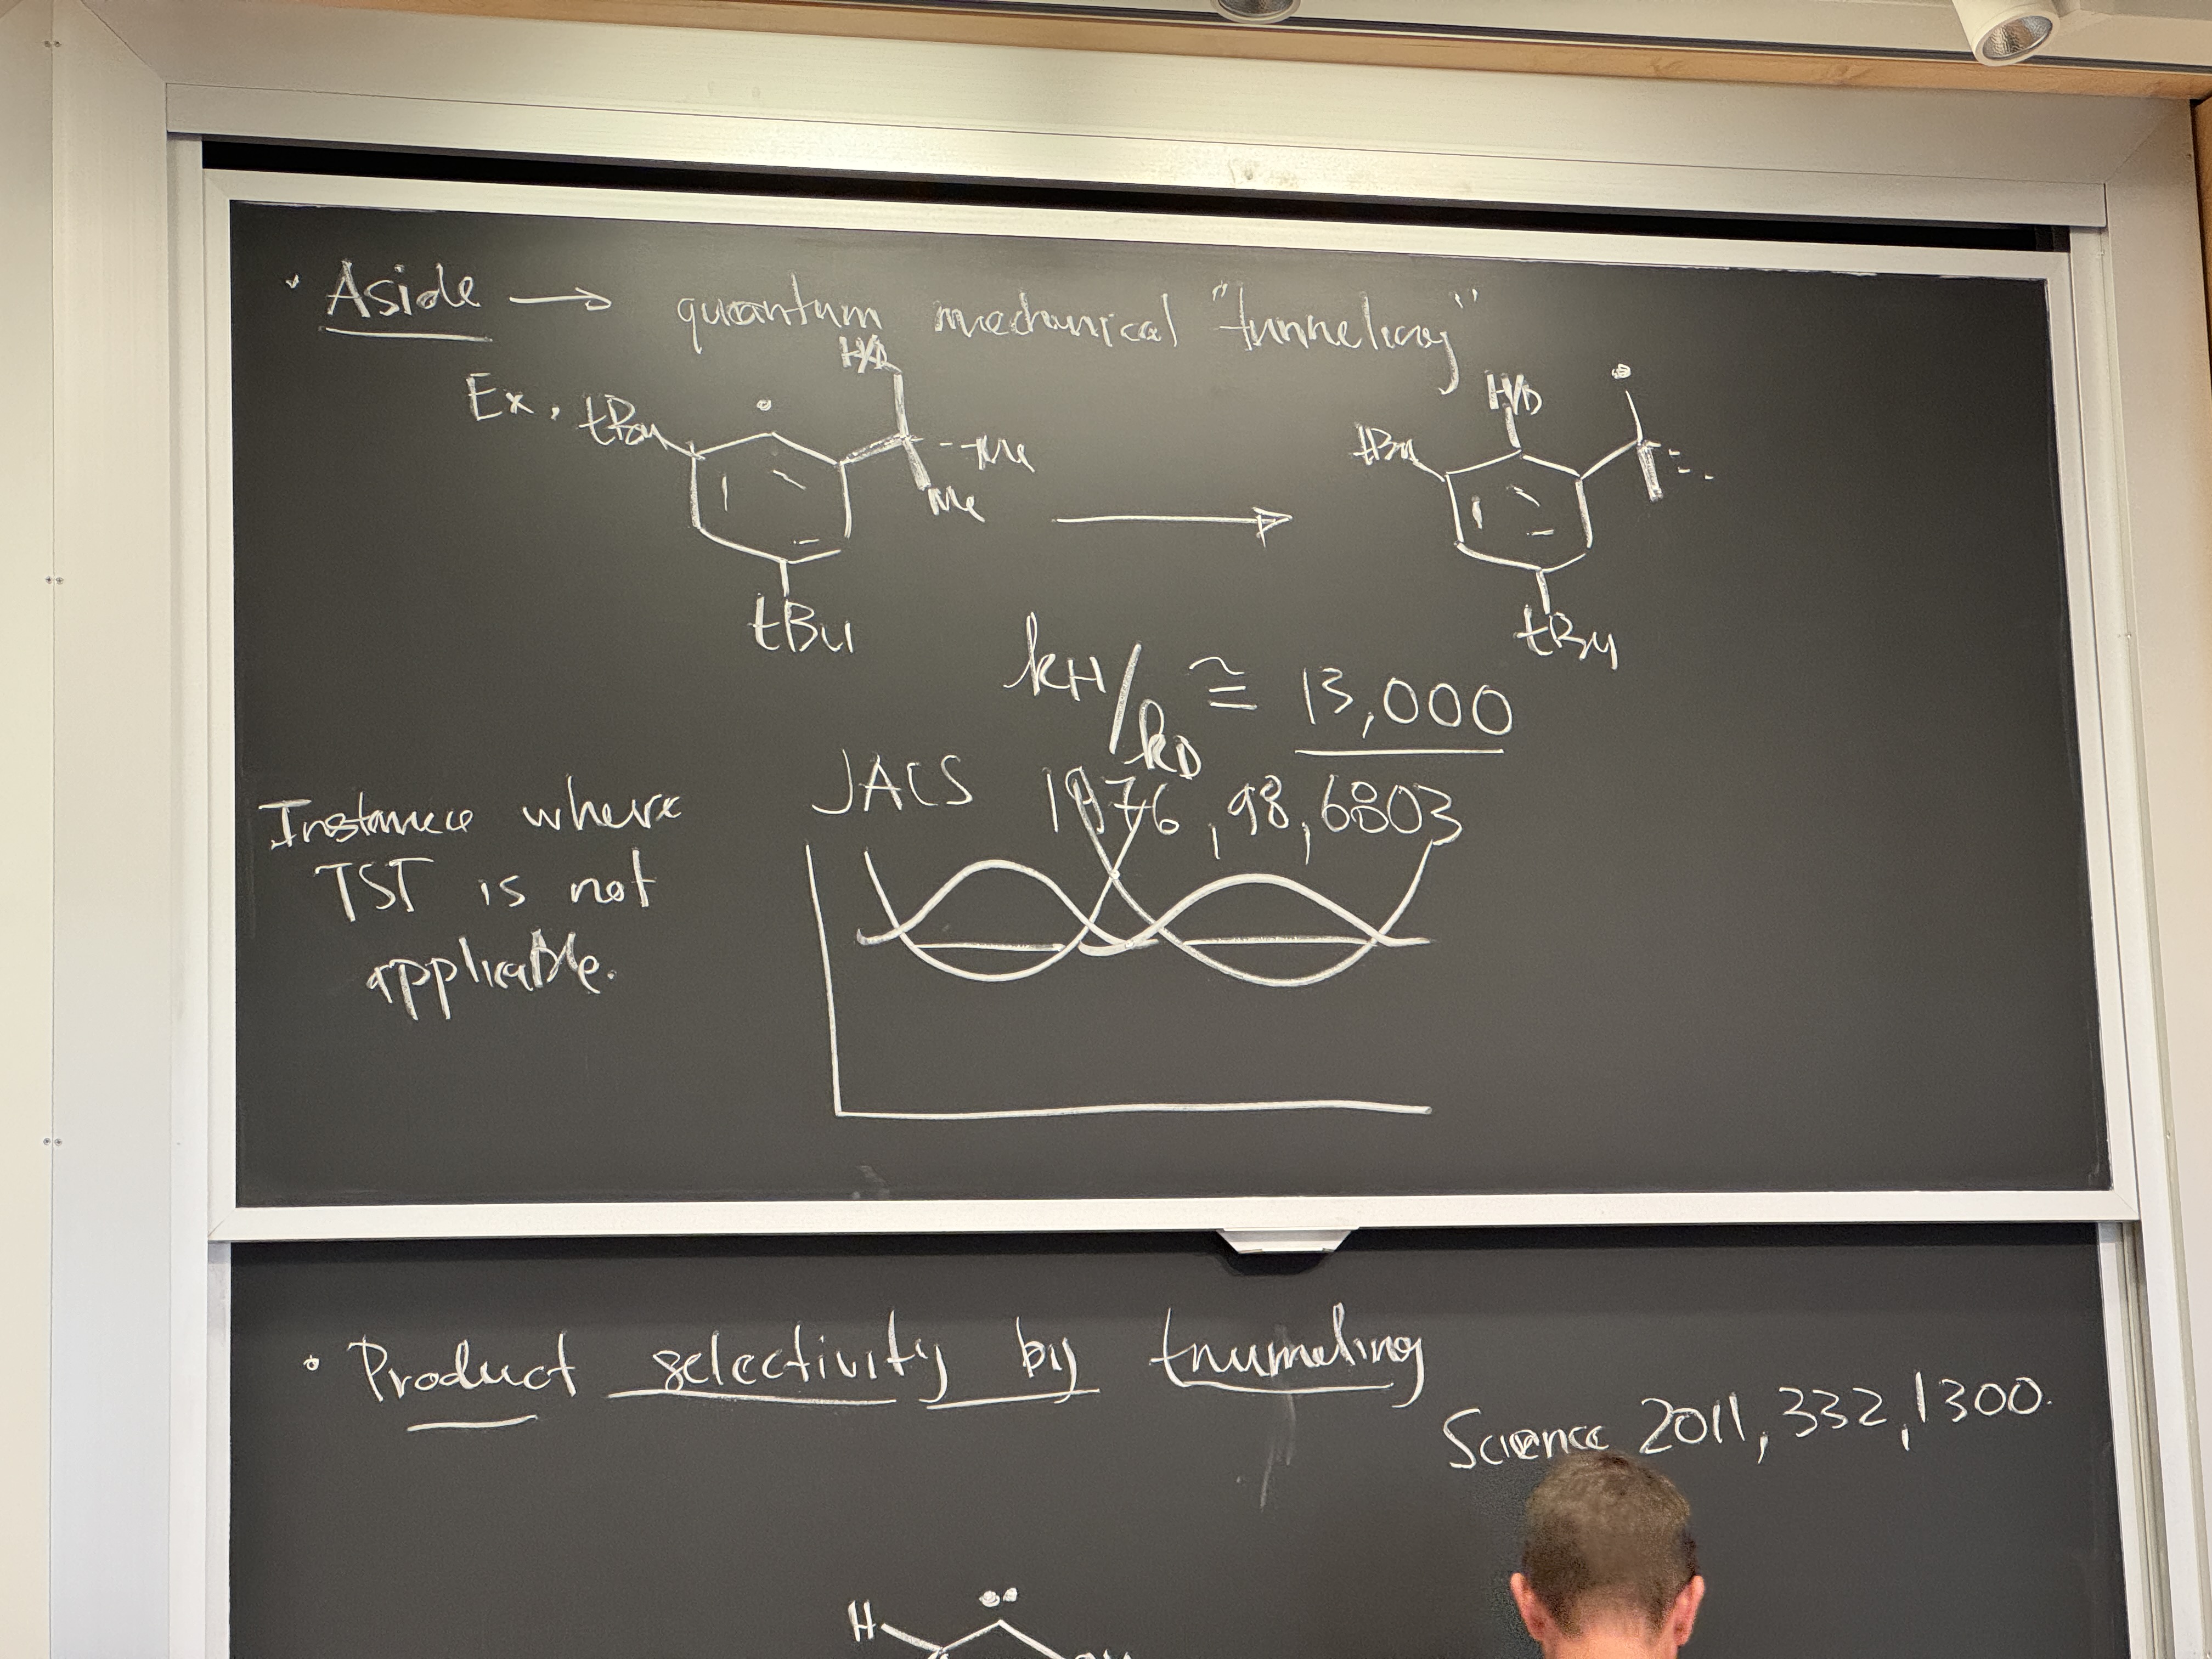 · Aside → quantum mechanical "tunneling"
Ex. tBu H/D Me Me tBu
tBu H/D tBu
kH/kD ≅ 13,000
JACS 1976, 98, 6803
Instance where
TST is not
applicable.
· Product selectivity by tnumeling
Science 2011, 332, 1300.
H